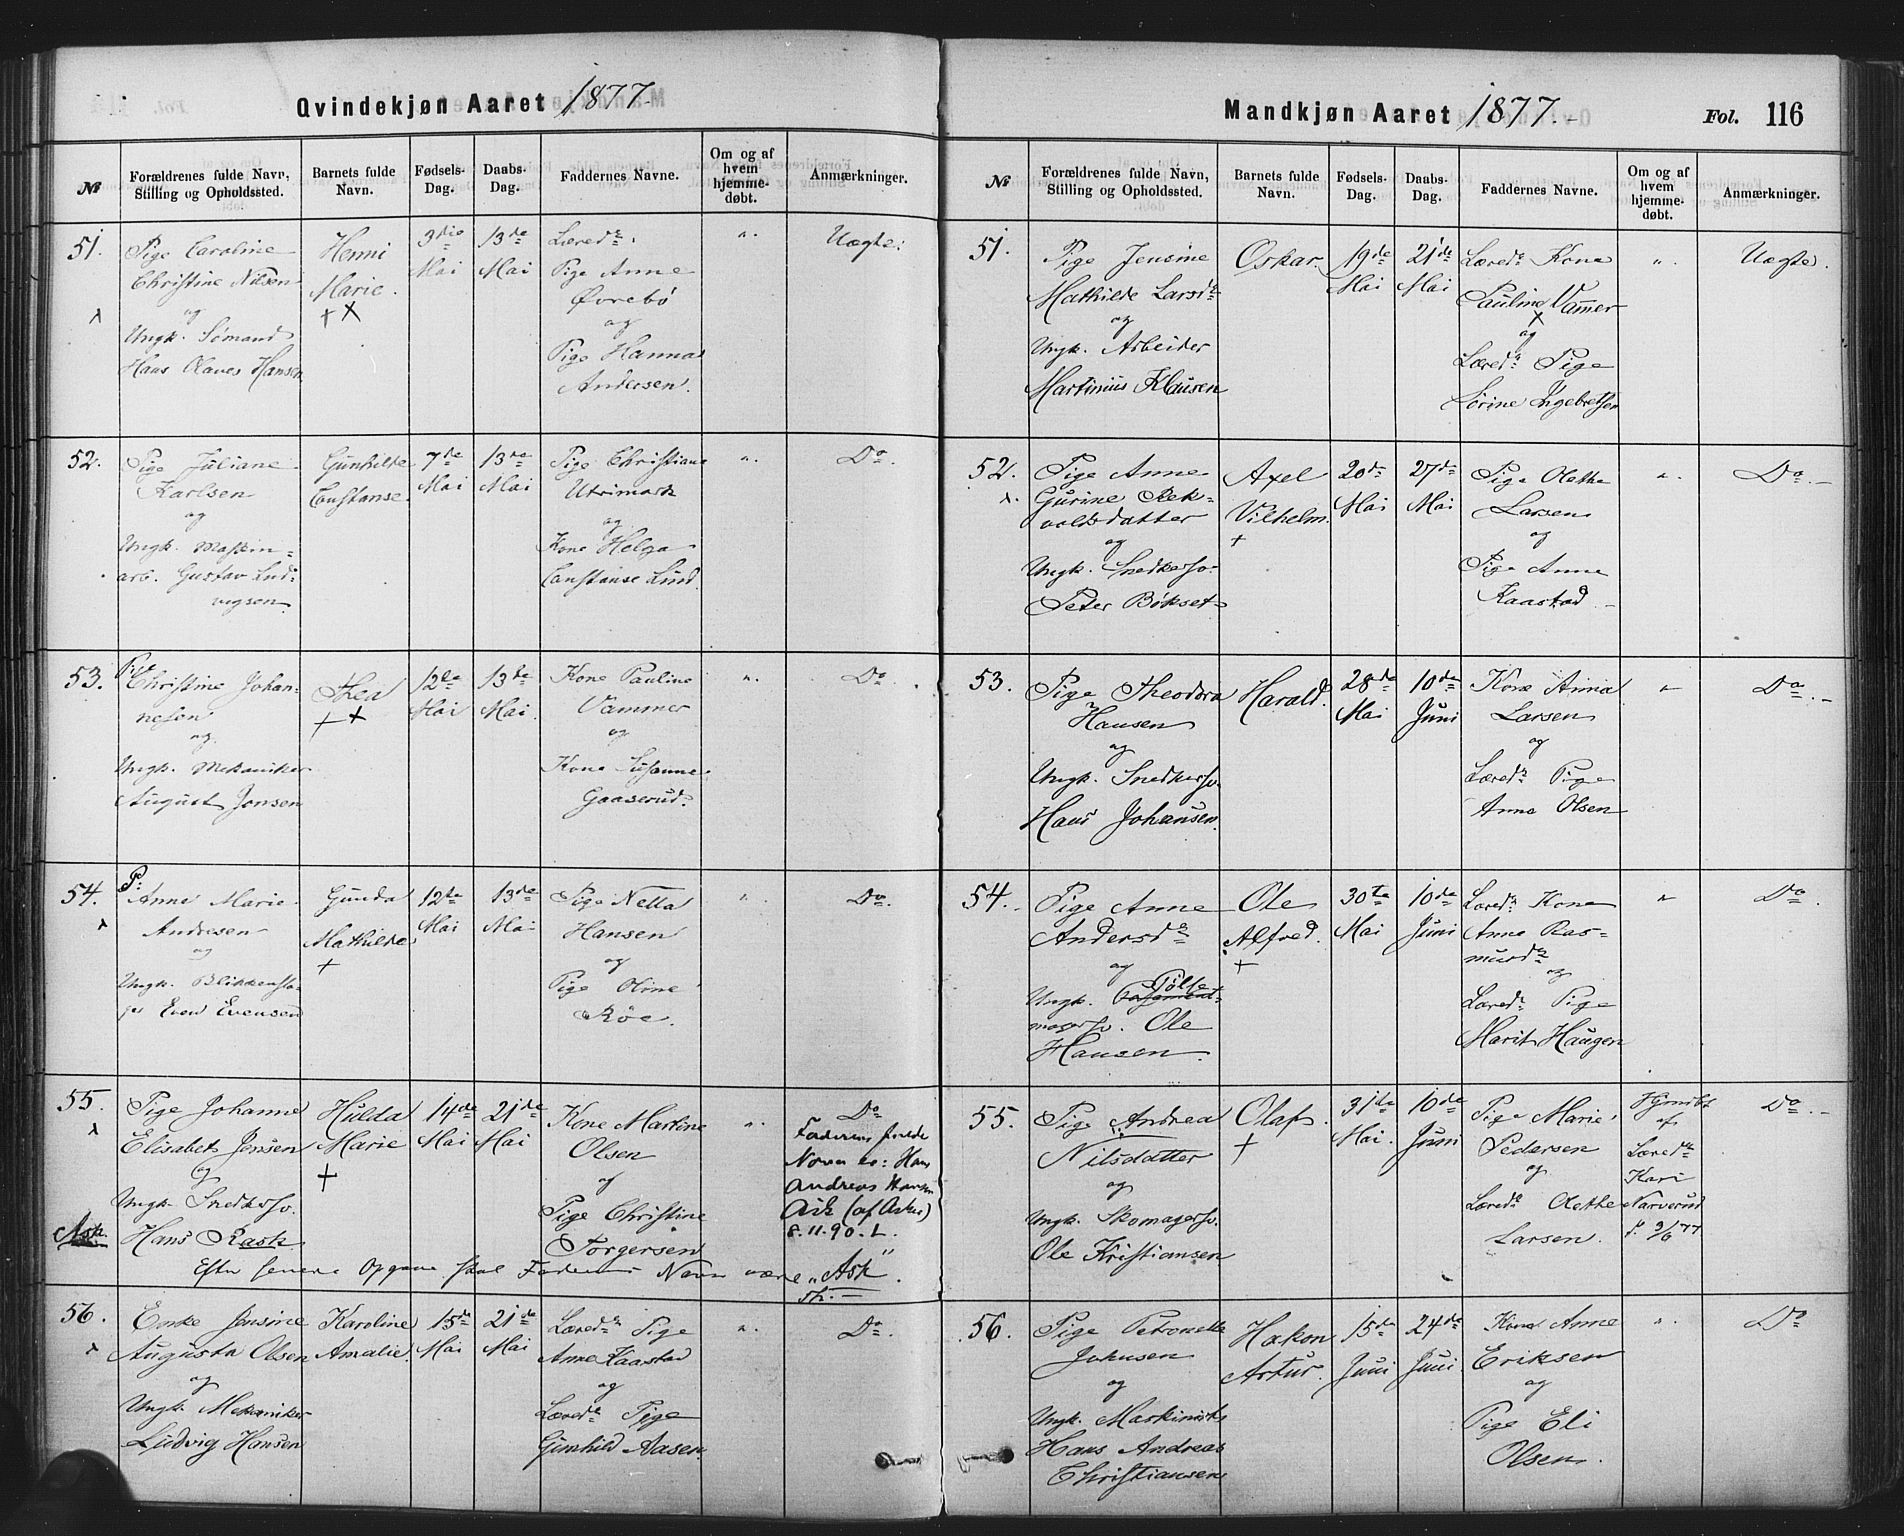 Qvindekjøn Aaret 1877.
№
Forældrenes fulde Navn, Stilling og Opholdssted.
Barnets fulde Navn.
Fødsels-Dag.
Daabs-Dag.
Faddernes Navne.
Om og af hvem hjemme-døbt.
Anmærkninger.
51.
Pige Caroline
Christine Nilsen
og
Ungk. Sømand
Hans Olaves Hansen
Henni
Marie.
3die
Mai
13de
Mai
Læred:
Pige Anne
Øvrebø
og
Pige Hanna
Andersen.
"
Uægte.
52.
Pige Juliane
Karlsen
og
Ungk. Maskin-
arb. Gustav Lud-
vigsen
Gunhilde
Constanse.
7de
Mai
13de
Mai
Pige Christiane
Utrimark
og
Kone Helga
Constanse Lund
"
Do.
53.
Pige
Christine Johan-
nesen
og
Ungk. Mekaniker
August Jensen
Thea
12te
Mai
13de
Mai
Kone Pauline
Vammer
og
Kone Susanne
Gaaserud.
"
Do
54.
P:
Anne Marie
Andresen
og
Ungk. Blikkensla-
ger Even Evensen
Gunda
Mathilde
12te
Mai
13de
Mai
Pige Netta
Hansen
og
Pige Oline
Røe.
"
Do.
55.
Pige Johanne
Elisabet Jensen
og
Ungk. Snedkersv.
Hans Rask
Ask.
Hulda
Marie
14de
Mai
21de
Mai
Kone Martine
Olsen
og
Pige Christine
Torgersen
"
Do
Faderens fulde
Navn er: Hans
Andreas Hansen
Ask (af Asker)
8.11.90. L.
Efter senere Opgave skal Faderens Navn være "Ask".
56.
Enke Jensine
Augusta Olsen
og
Ungk. Mekaniker
Ludvig Hansen
Karoline
Amalie.
15de
Mai
21de
Mai
Læred: Pige
Anne Kaastad
og
Læred: Pige
Gunhild Aasen.
"
Do.
Mandkjøn Aaret 1877.
Fol. 116
№
Forældrenes fulde Navn, Stilling og Opholdssted.
Barnets fulde Navn.
Fødsels-Dag.
Daabs-Dag.
Faddernes Navne.
Om og af hvem hjemme-døbt.
Anmærkninger.
51.
Pige Jensine
Mathilde Larsdr
og
Ungk. Arbeider
Martinius Klausen
Oskar.
19de
Mai
21de
Mai
Læred: Kone
Pauline Vammer
og
Læred: Pige
Lorine Ingebretsen
"
Uægte.
52.
Pige Anne
Gurine Rek-
voldsdatter
og
Ungk. Snedkersv.
Peter Bøkset
Axel
Vilhelm.
20de
Mai
27de
Mai
Pige Olethe
Larsen
og
Pige Anne
Kaastad
"
Do.
53.
Pige Theodora
Hansen
og
Ungk. Snedkersv.
Hans Johansen.
Harald.
28de
Mai
10de
Juni
Kone Anna
Larsen
og
Læred: Pige
Anna Olsen
"
Do.
54.
Pige Anne
Andersdr
og
Ungk. Pølse-
magersv. Ole
Hansen.
Ole
Alfred.
30te
Mai
10de
Juni
Læred: Kone
Anne Ras-
musdr
og
Læred: Pige
Marit Haugen
"
Do
55.
Pige Andrea
Nilsdatter
og
Ungk. Skomagersv.
Ole Kristiansen
Olaf.
31te
Mai.
10de
Juni
Pige Marie
Pedersen
og
Læred: Olethe
Larsen.
Hjemdbt
af
Læred:
Kari
Narverud
Do.
56.
Pige Petronelle
Johnsen
og
Ungk. Maskinist
Hans Andreas
Christiansen
Hakon
Artur.
15de
Juni
24de
Juni
Kone Anne
Eriksen
og
Pige Eli
Olsen.
"
Do